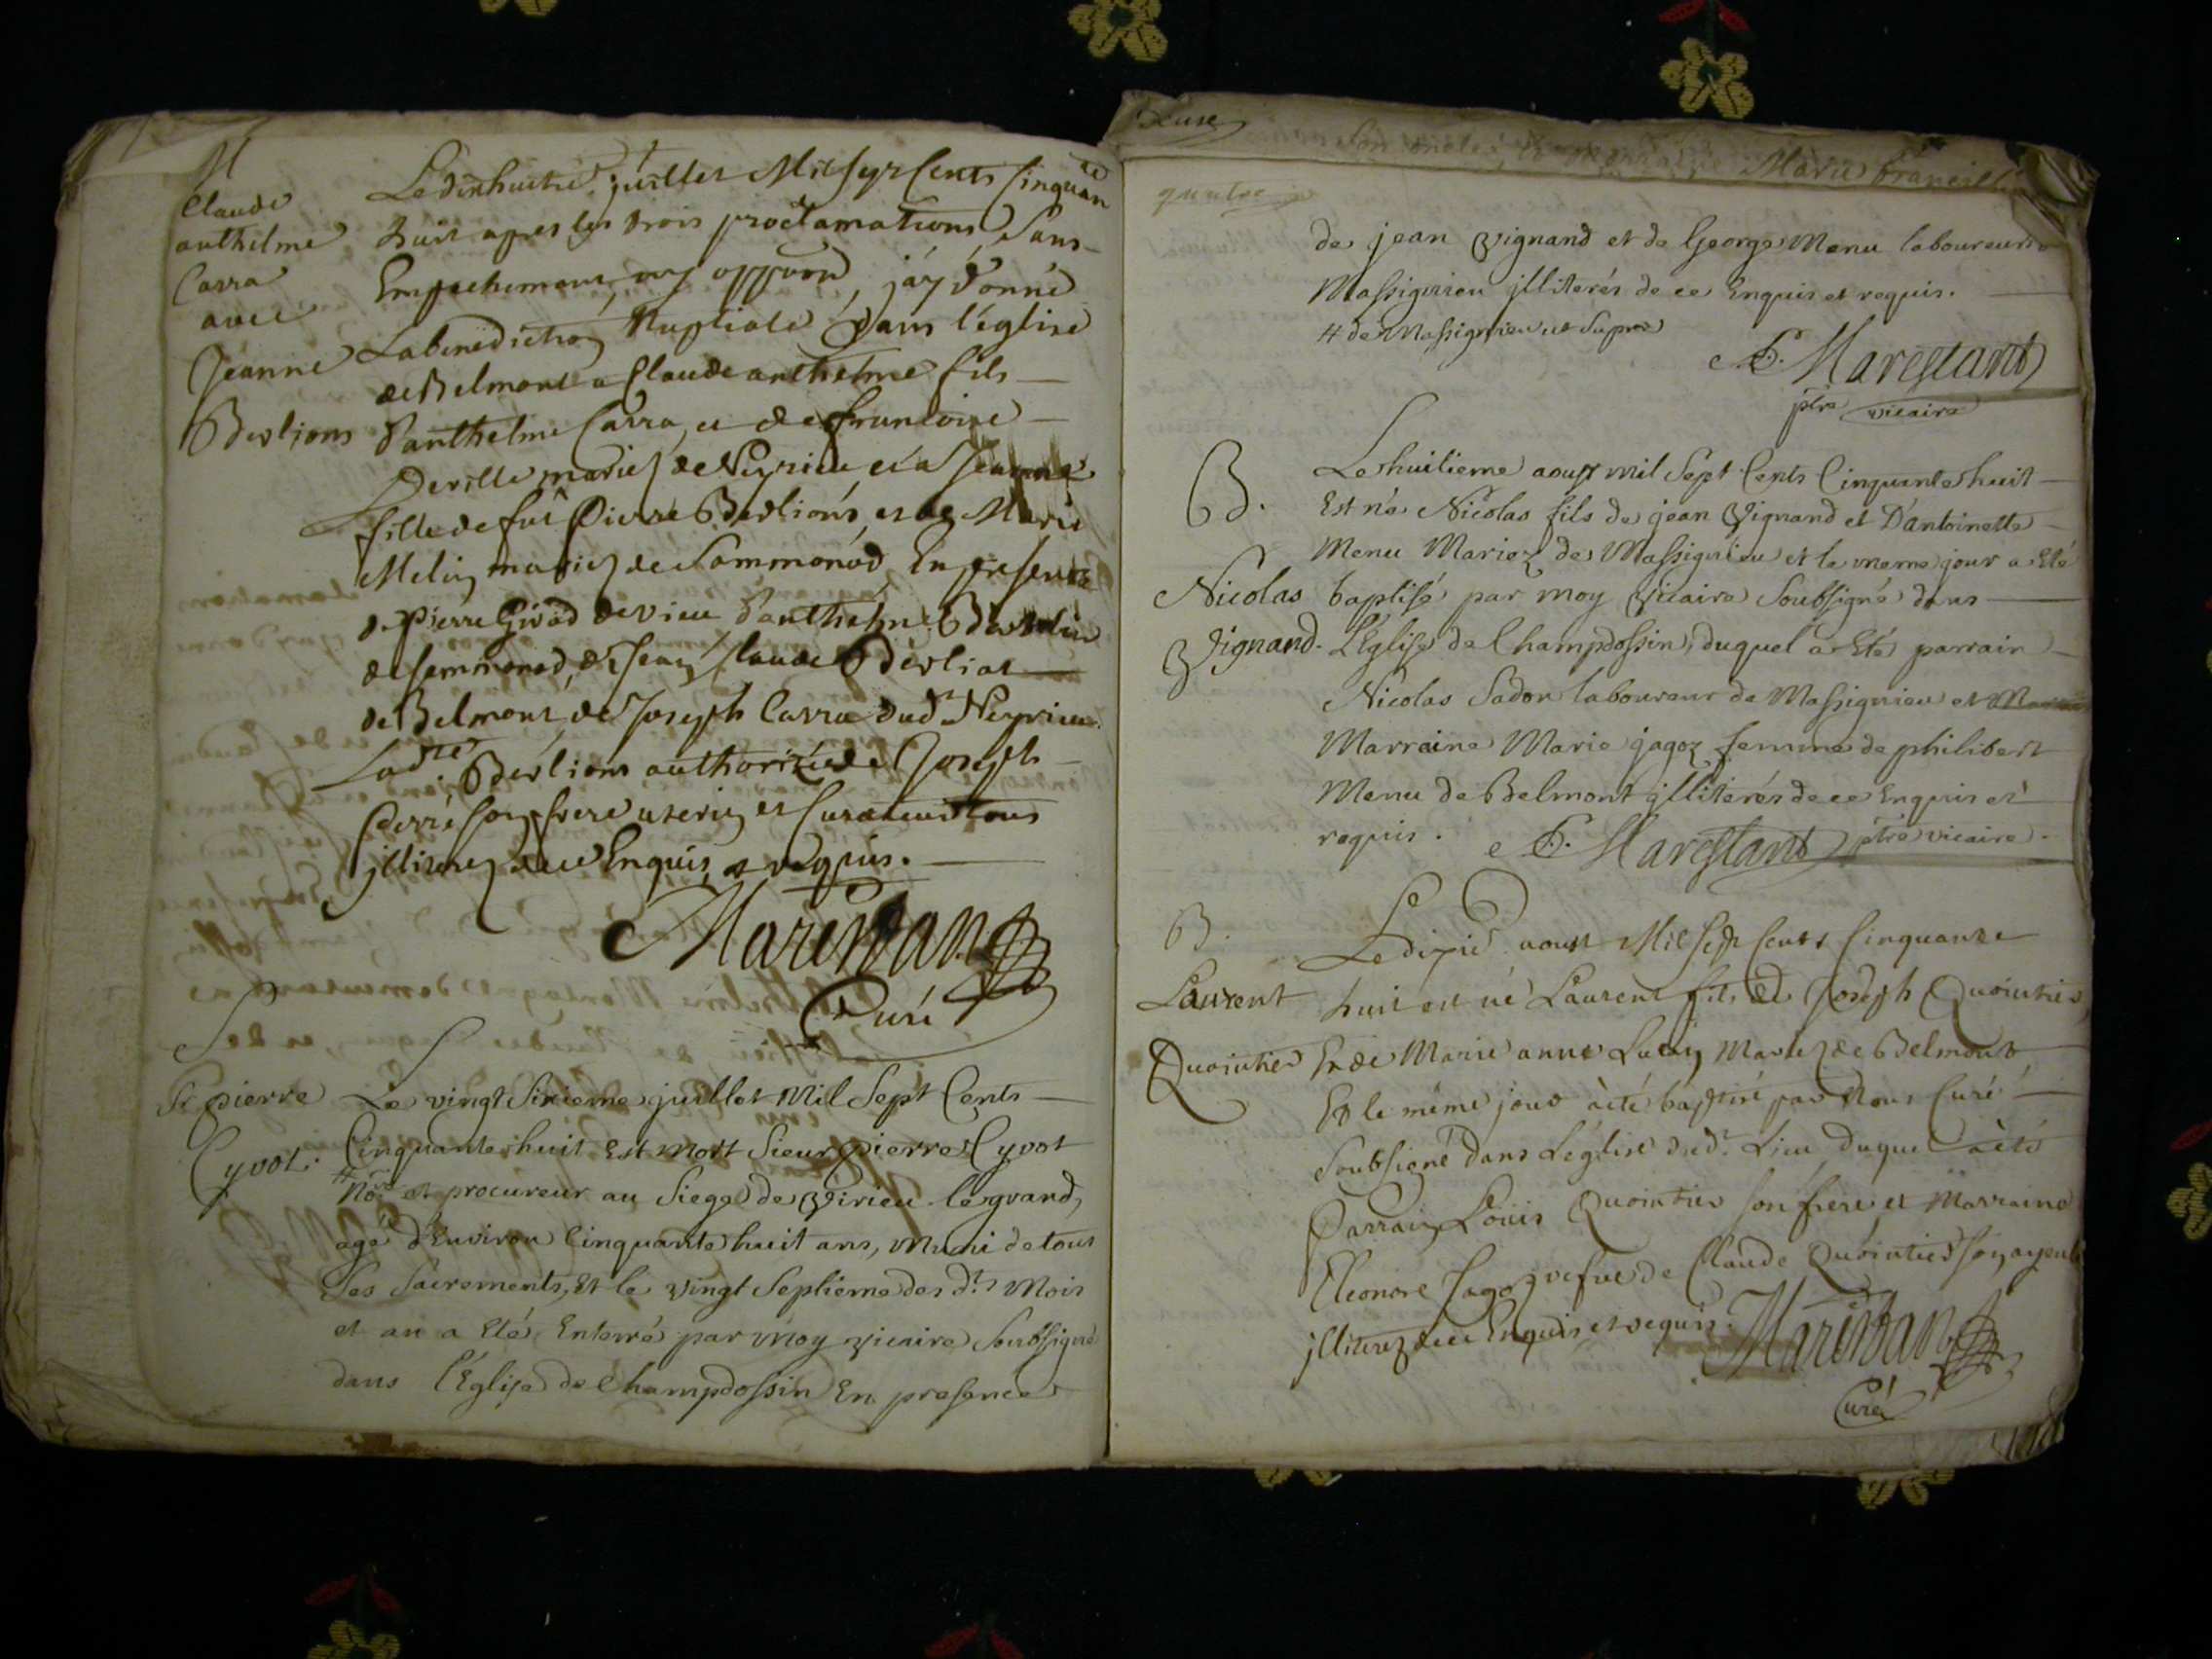 M
Claude
anthelme
Carra
avec
Jeanne
Berlions
Le dixhuitie. juillet Mil sept Cents Cinquante
huit apres les trois proclamations sans
Empechement ny opposon, jay donné
La benediction Nuptiale dans l'église
de Belmont a Claude anthelme fils
d'anthelme Carra, et de francoise
Deville mariez de Neyrieu, et a Jeanne
fille de fut Pierre Berlions, et de Marie
Melin mariez de Sommonod, En presence
de pierre Girod de vieu d'anthelme Berlion
de sommonod, de Jean Claude Berliat
de Belmont, de Joseph Carra dud. Neyrieu.
Ladte. Berlions authorizée de Joseph
son frere uterin et Curateur tous
illiterez de ce Enquis et requis.
Marestan
Curé
S
Sr pierre
Cyvot.
Le vingt Sixieme juillet Mil Sept Cents
Cinquante huit Est mort Sieur pierre Cyvot
# Nore et procureur au Siege de Virieu le grand,
agé d'Environ Cinquante huit ans, muni de tous
Ses Sacrements, Et le vingt Septieme des dts Mois
et an a Eté Enterré par moy vicaire Soubsigné
dans l'Église de Champdossin En presence
Marie francoise
quatre
de jean Vignand et de George Menu laboureurs
Massignieu illiterés de ce Enquis et requis.
# de Massignieu ut Supra
Marestant
ptre vicaire
B.
Nicolas
Vignand.
Le huitieme aoust mil Sept Cents Cinquante huit
Est né Nicolas fils de jean Vignand et D'antoinette
Menu Mariez de Massignieu et le meme jour a Eté
baptisé par moy Vicaire Soubsigné dans
L'Église de Champdossin, duquel a Eté parrain
Nicolas Sadon laboureur de Massignieu et
Marraine Marie jagoz femme de philibert
Menu de Belmont illiterés de ce Enquis et
requis. Marestant ptre vicaire.
B.
Laurent
Quointier
Le dixie. aoust Mil sept Cents Cinquante
huit est né Laurent fils de Joseph Quointier
Et de Marie anne Lucin Mariez de Belmont
Et le même jour a été baptisé par Nous Curé
Soubsigné dans L'église dud. Lieu, duquel a été
Parrain Louis Quointier son frere et Marraine
Eleonore Jagoz vefue de Claude Quointier son ayeule
illiterez de ce Enquis et requis. Marestan
Curé